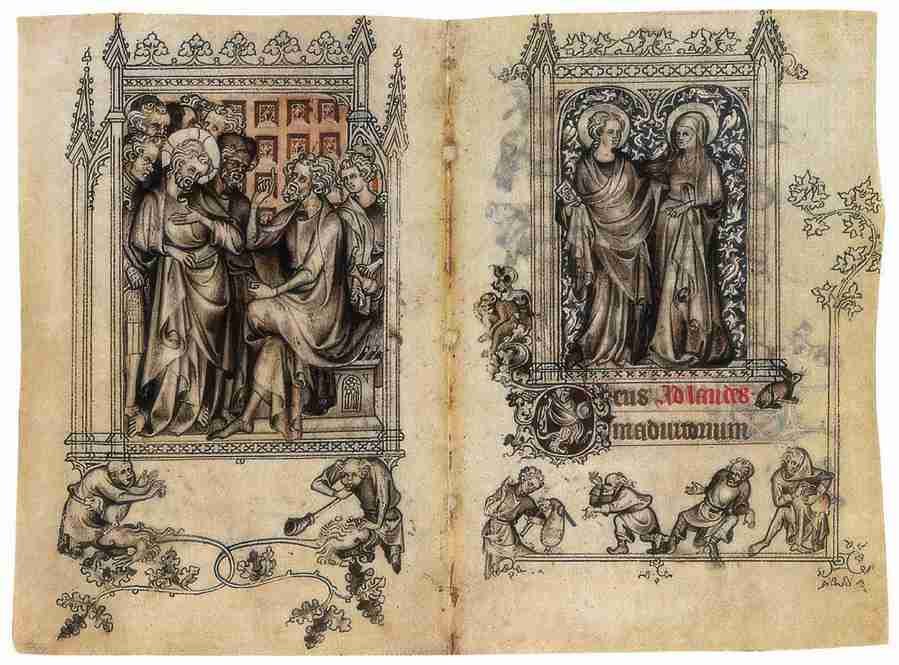 Deus Ad laudes
in adiutorium